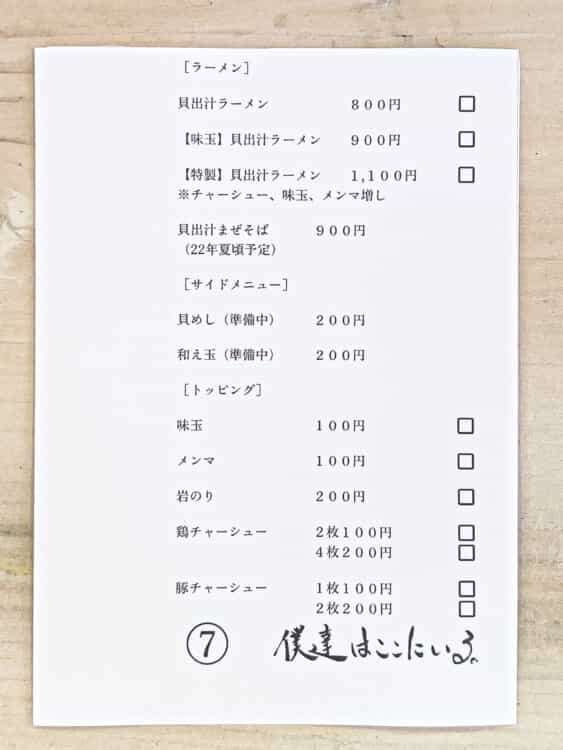 ［ラーメン］
貝出汁ラーメン ８００円 □
【味玉】貝出汁ラーメン ９００円 □
【特製】貝出汁ラーメン １,１００円 □
※チャーシュー、味玉、メンマ増し
貝出汁まぜそば ９００円
（22年夏頃予定）
［サイドメニュー］
貝めし（準備中） ２００円
和え玉（準備中） ２００円
［トッピング］
味玉 １００円 □
メンマ １００円 □
岩のり ２００円 □
鶏チャーシュー ２枚１００円 □
４枚２００円 □
豚チャーシュー １枚１００円 □
２枚２００円 □
⑦ 僕達はここにいる。